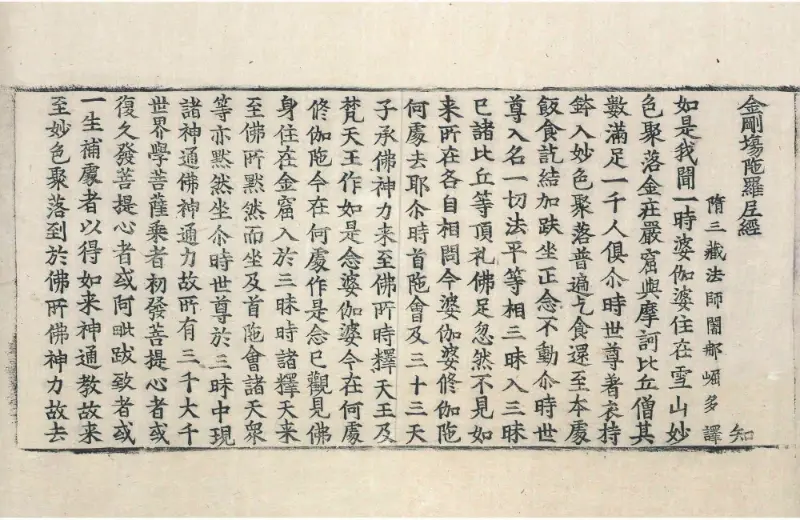 金剛塲陁羅尼經 知
隋三藏法師闍那崛多譯
如是我聞一時婆伽婆住在雪山妙
色聚落金莊嚴窟與摩訶比丘僧其
數滿足一千人俱尒時世尊著衣持
鉢入妙色聚落普遍乞食還至本處
飯食訖結加趺坐正念不動尒時世
尊入名一切法平等相三昧入三昧
已諸比丘等頂礼佛足忽然不見如
来所在各自相問今婆伽婆脩伽陁
何處去耶尒時首陁會及三十三天
子承佛神力来至佛所時釋天王及
梵天王作如是念婆伽婆今在何處
脩伽陁今在何處作是念已觀見佛
身住在金窟入於三昧時諸釋天来
至佛所默然而坐及首陁會諸天衆
等亦默然坐尒時世尊於三昧中現
諸神通佛神通力故所有三千大千
世界學菩薩乘者初發菩提心者或
復久發菩提心者或阿毗跋致者或
一生補處者以得如来神通教故来
至妙色聚落到於佛所佛神力故去